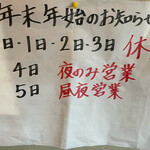 年末年始のお知らせ
日・1日・2日・3日 休
4日 夜のみ営業
5日 昼夜営業